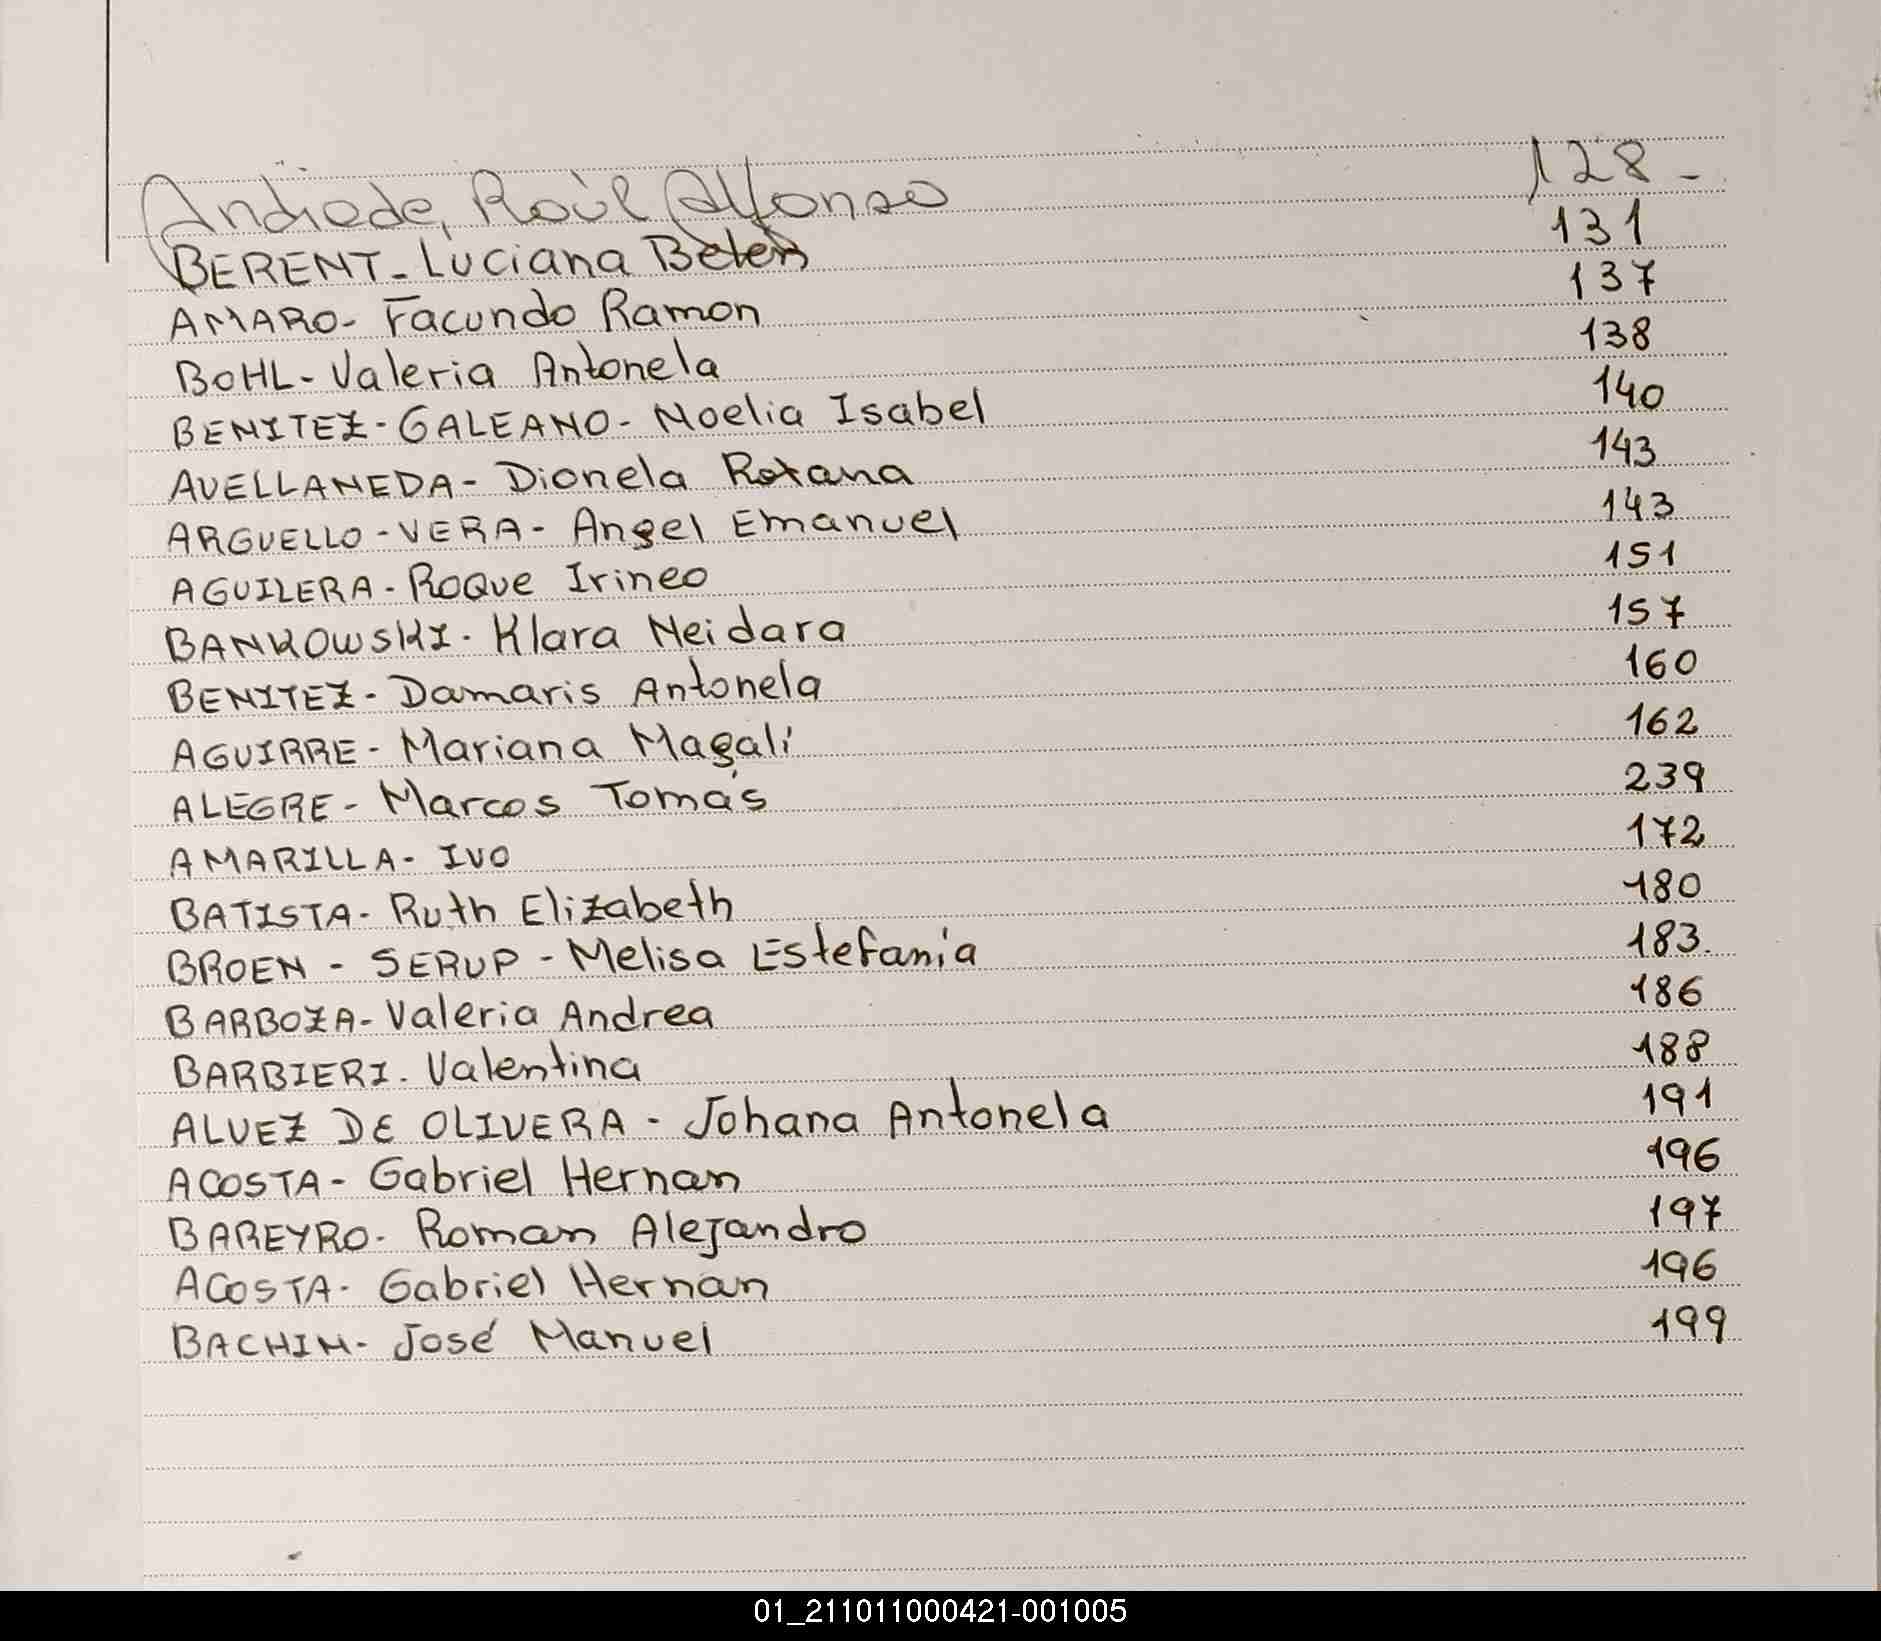 Andrade, Raúl Alfonso 128-
BERENT- Luciana Belen 131
AMARO- Facundo Ramon 137
BOHL- Valeria Antonela 138
BENITEZ- GALEANO- Noelia Isabel 140
AVELLANEDA- Dionela Roxana 143
ARGUELLO-VERA- Angel Emanuel 143
AGUILERA- Roque Irineo 151
BANKOWSKI- Klara Neidara 157
BENITEZ- Damaris Antonela 160
AGUIRRE- Mariana Magalí 162
ALEGRE- Marcos Tomás 239
AMARILLA- IVO 172
BATISTA- Ruth Elizabeth 180
BROEN - SERUP - Melisa Estefanía 183.
BARBOZA- Valeria Andrea 186
BARBIERI. Valentina 188
ALVEZ DE OLIVERA - Johana Antonela 191
ACOSTA- Gabriel Hernan 196
BAREYRO- Roman Alejandro 197
ACOSTA- Gabriel Hernan 196
BACHIM- José Manuel 199
01_211011000421-001005